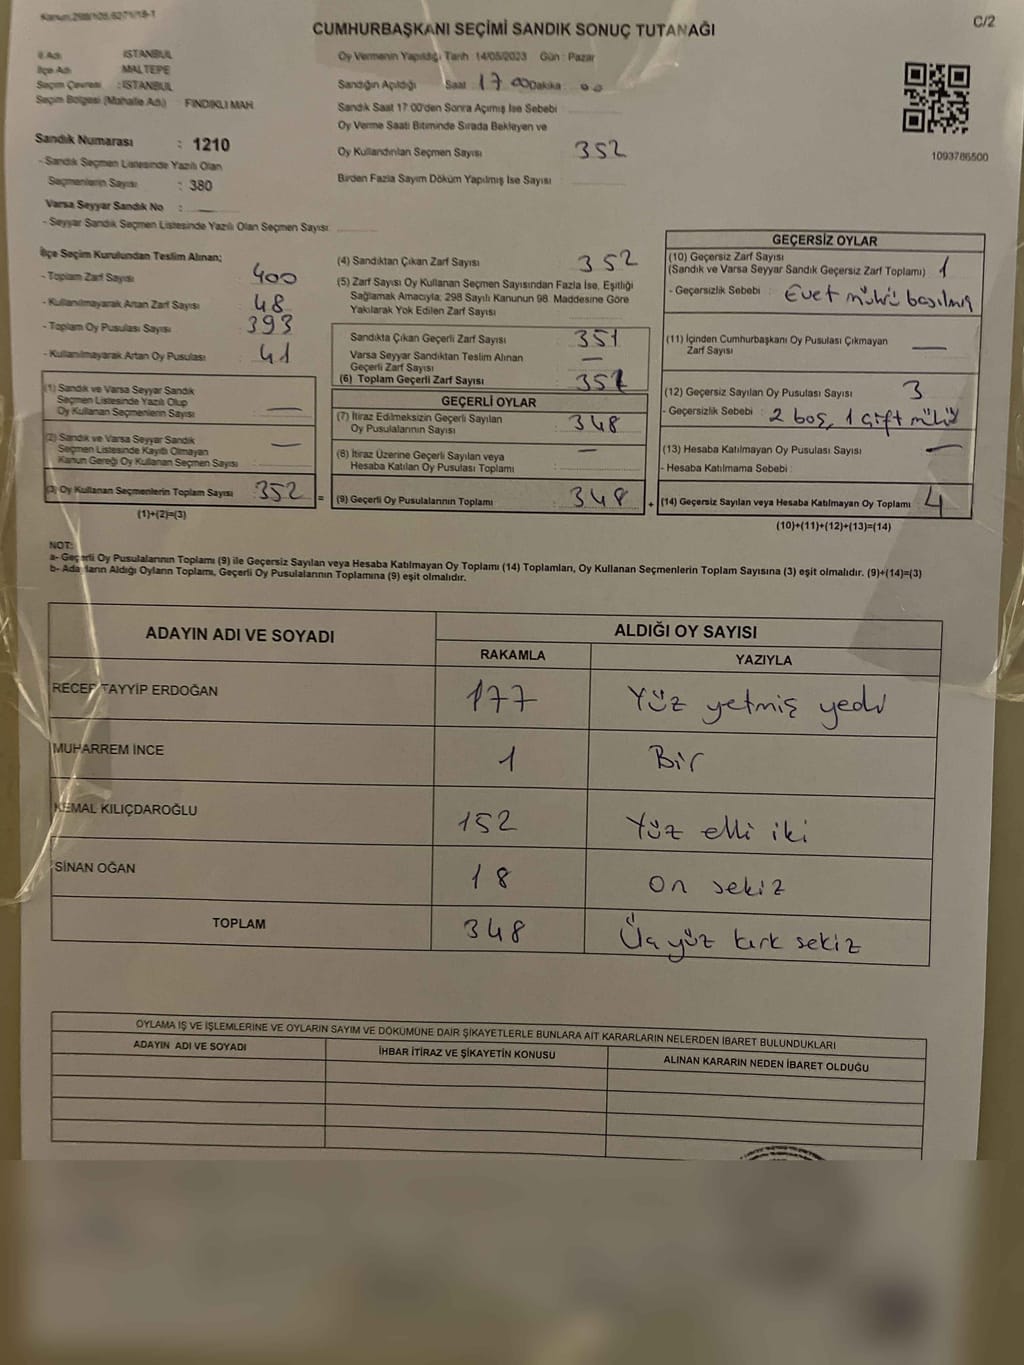 Kanun:298/105,6271/18-1
C/2
CUMHURBAŞKANI SEÇİMİ SANDIK SONUÇ TUTANAĞI
İl Adı : İSTANBUL
İlçe Adı : MALTEPE
Seçim Çevresi : İSTANBUL
Seçim Bölgesi (Mahalle Adı) : FINDIKLI MAH.
Sandık Numarası : 1210
- Sandık Seçmen Listesinde Yazılı Olan
Seçmenlerin Sayısı : 380
Varsa Seyyar Sandık No : —
- Seyyar Sandık Seçmen Listesinde Yazılı Olan Seçmen Sayısı:
Oy Vermenin Yapıldığı Tarih : 14/05/2023 Gün : Pazar
Sandığın Açıldığı Saat : 17 00 Dakika : 00
Sandık Saat 17:00'den Sonra Açımış İse Sebebi
Oy Verme Saati Bitiminde Sırada Bekleyen ve
Oy Kullandırılan Seçmen Sayısı : 352
Birden Fazla Sayım Döküm Yapılmış İse Sayısı
1093786500
İlçe Seçim Kurulundan Teslim Alınan;
- Toplam Zarf Sayısı : 400
- Kullanılmayarak Artan Zarf Sayısı : 48
- Toplam Oy Pusulası Sayısı : 393
- Kullanılmayarak Artan Oy Pusulası : 41
(1) Sandık ve Varsa Seyyar Sandık
Seçmen Listesinde Yazılı Olup
Oy Kullanan Seçmenlerin Sayısı : —
(2) Sandık ve Varsa Seyyar Sandık
Seçmen Listesinde Kayıtlı Olmayan
Kanun Gereği Oy Kullanan Seçmen Sayısı : —
(3) Oy Kullanan Seçmenlerin Toplam Sayısı : 352
(1)+(2)=(3)
=
(4) Sandıktan Çıkan Zarf Sayısı : 352
(5) Zarf Sayısı Oy Kullanan Seçmen Sayısından Fazla İse, Eşitliği
Sağlamak Amacıyla, 298 Sayılı Kanunun 98. Maddesine Göre
Yakılarak Yok Edilen Zarf Sayısı
Sandıkta Çıkan Geçerli Zarf Sayısı : 351
Varsa Seyyar Sandıktan Teslim Alınan
Geçerli Zarf Sayısı : —
(6) Toplam Geçerli Zarf Sayısı : 351
GEÇERLİ OYLAR
(7) İtiraz Edilmeksizin Geçerli Sayılan
Oy Pusulalarının Sayısı : 348
(8) İtiraz Üzerine Geçerli Sayılan veya
Hesaba Katılan Oy Pusulası Toplamı : —
(9) Geçerli Oy Pusulalarının Toplamı : 348
+
GEÇERSİZ OYLAR
(10) Geçersiz Zarf Sayısı
(Sandık ve Varsa Seyyar Sandık Geçersiz Zarf Toplamı) : 1
- Geçersizlik Sebebi : Evet mühü basılmış
(11) İçinden Cumhurbaşkanı Oy Pusulası Çıkmayan
Zarf Sayısı : —
(12) Geçersiz Sayılan Oy Pusulası Sayısı : 3
- Geçersizlik Sebebi : 2 boş, 1 çift mühür
(13) Hesaba Katılmayan Oy Pusulası Sayısı : —
- Hesaba Katılmama Sebebi :
(14) Geçersiz Sayılan veya Hesaba Katılmayan Oy Toplamı : 4
(10)+(11)+(12)+(13)=(14)
NOT:
a- Geçerli Oy Pusulalarının Toplamı (9) ile Geçersiz Sayılan veya Hesaba Katılmayan Oy Toplamı (14) Toplamları, Oy Kullanan Seçmenlerin Toplam Sayısına (3) eşit olmalıdır. (9)+(14)=(3)
b- Adayların Aldığı Oyların Toplamı, Geçerli Oy Pusulalarının Toplamına (9) eşit olmalıdır.
ADAYIN ADI VE SOYADI
ALDIĞI OY SAYISI
RAKAMLA YAZIYLA
RECEP TAYYİP ERDOĞAN 177 Yüz yetmiş yedi
MUHARREM İNCE 1 Bir
KEMAL KILIÇDAROĞLU 152 Yüz elli iki
SİNAN OĞAN 18 On sekiz
TOPLAM 348 Üç yüz kırk sekiz
OYLAMA İŞ VE İŞLEMLERİNE VE OYLARIN SAYIM VE DÖKÜMÜNE DAİR ŞİKAYETLERLE BUNLARA AİT KARARLARIN NELERDEN İBARET BULUNDUKLARI
ADAYIN ADI VE SOYADI İHBAR İTİRAZ VE ŞİKAYETİN KONUSU ALINAN KARARIN NEDEN İBARET OLDUĞU